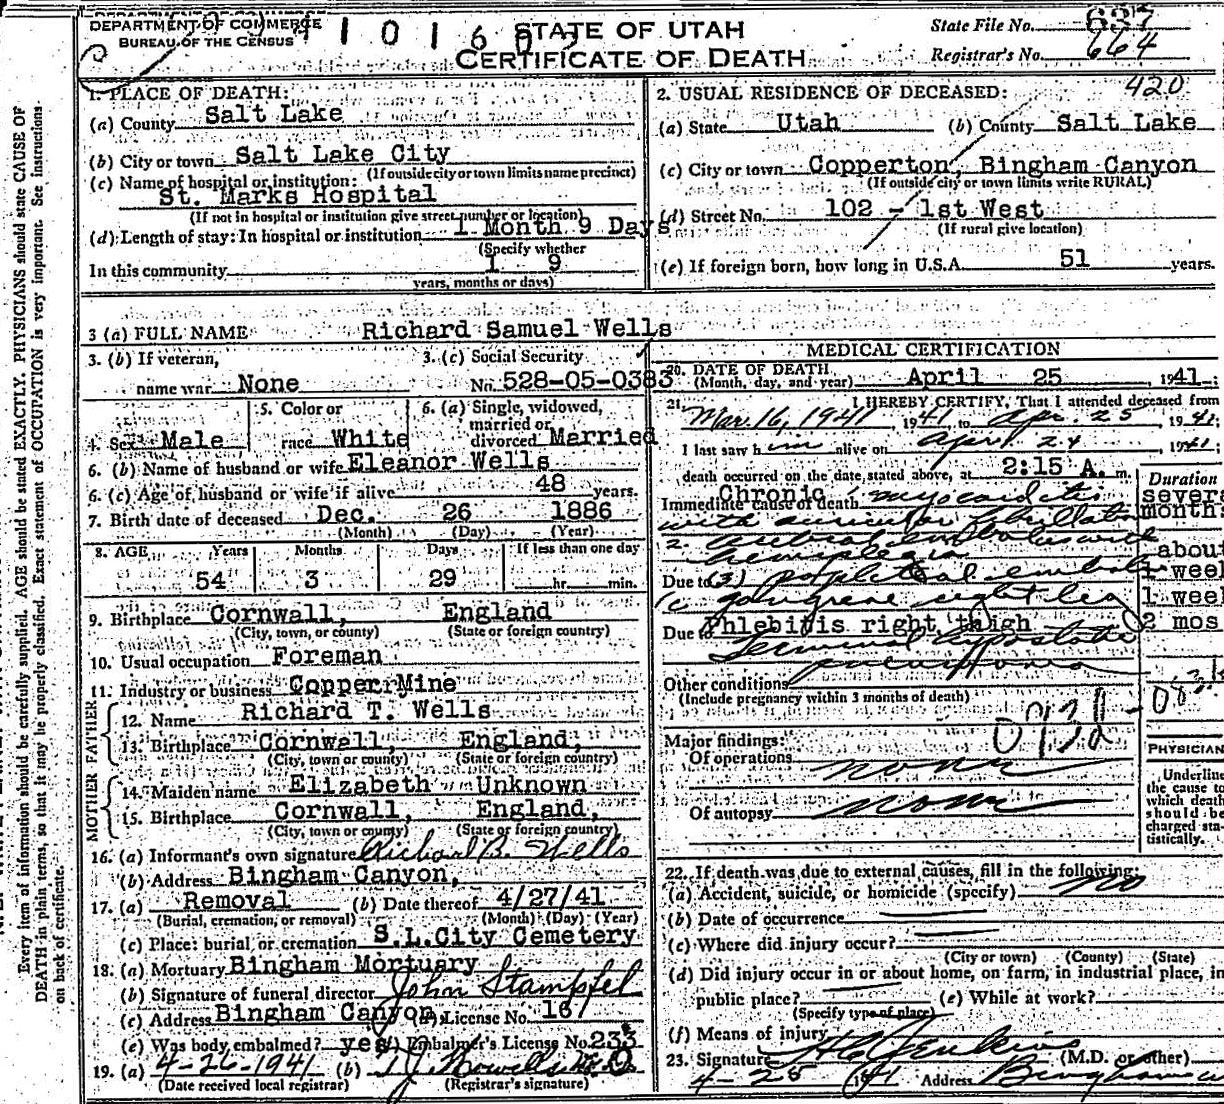 DEPARTMENT OF COMMERCE
BUREAU OF THE CENSUS
STATE OF UTAH
CERTIFICATE OF DEATH
State File No. 637
Registrar's No. 664
420
1. PLACE OF DEATH:
(a) County Salt Lake
(b) City or town Salt Lake City
(If outside city or town limits name precinct)
(c) Name of hospital or institution:
St. Marks Hospital
(If not in hospital or institution give street number or location)
(d) Length of stay: In hospital or institution 1 Month 9 Days
(Specify whether
In this community 1 9
years, months or days)
2. USUAL RESIDENCE OF DECEASED:
(a) State Utah (b) County Salt Lake
(c) City or town Copperton, Bingham Canyon
(If outside city or town limits write RURAL)
(d) Street No. 102 - 1st West
(If rural give location)
(e) If foreign born, how long in U.S.A. 51 years.
3 (a) FULL NAME Richard Samuel Wells
3. (b) If veteran,
name war None
3. (c) Social Security
No. 528-05-0383
4. Sex Male
5. Color or
race White
6. (a) Single, widowed,
married or
divorced Married
6. (b) Name of husband or wife Eleanor Wells
6. (c) Age of husband or wife if alive 48 years.
7. Birth date of deceased Dec. 26 1886
(Month) (Day) (Year)
8. AGE Years Months Days If less than one day
54 3 29 hr. min.
9. Birthplace Cornwall, England
(City, town, or county) (State or foreign country)
10. Usual occupation Foreman
11. Industry or business Copper Mine
FATHER
12. Name Richard T. Wells
13. Birthplace Cornwall, England,
(City, town, or county) (State or foreign country)
MOTHER
14. Maiden name Elizabeth Unknown
15. Birthplace Cornwall, England,
(City, town or county) (State or foreign country)
16. (a) Informant's own signature Richard B. Wells
(b) Address Bingham Canyon,
17. (a) Removal (b) Date thereof 4/27/41
(Burial, cremation, or removal) (Month) (Day) (Year)
(c) Place: burial or cremation S.L.City Cemetery
18. (a) Mortuary Bingham Mortuary
(b) Signature of funeral director John Stampfel
(c) Address Bingham Canyon, License No. 167
(e) Was body embalmed? yes Embalmer's License No. 233
19. (a) 4-26-1941 (b)
(Date received local registrar) (Registrar's signature)
MEDICAL CERTIFICATION
20. DATE OF DEATH
(Month, day, and year) April 25, 1941;
21. I HEREBY CERTIFY, That I attended deceased from
Mar. 16, 1941 1941 to Apr. 25 1941;
I last saw him alive on April 24, 1941;
death occurred on the date stated above, at 2:15 A. m.
Duration
Immediate cause of death Chronic myocarditis
several months
with auricular fibrillation
2 cerebral embolus with
hemiplegia
about 1 week
Due to (3) popliteal embolus
gangrene right leg
1 week
Due to Phlebitis right thigh
2 mos
Terminal hypostatic
pneumonia
Other conditions
(Include pregnancy within 3 months of death)
Major findings:
Of operations none
Of autopsy none
PHYSICIAN
Underline
the cause to
which death
should be
charged sta-
tistically.
22. If death was due to external causes, fill in the following:
(a) Accident, suicide, or homicide (specify) no
(b) Date of occurrence
(c) Where did injury occur?
(City or town) (County) (State)
(d) Did injury occur in or about home, on farm, in industrial place, in
public place? (e) While at work?
(Specify type of place)
(f) Means of injury
23. Signature Jenkins (M.D. or other)
4-25 1941 Address Bingham
Every item of information should be carefully supplied. AGE should be stated EXACTLY. PHYSICIANS should state CAUSE OF
DEATH in plain terms, so that it may be properly classified. Exact statement of OCCUPATION is very important. See instructions
on back of certificate.